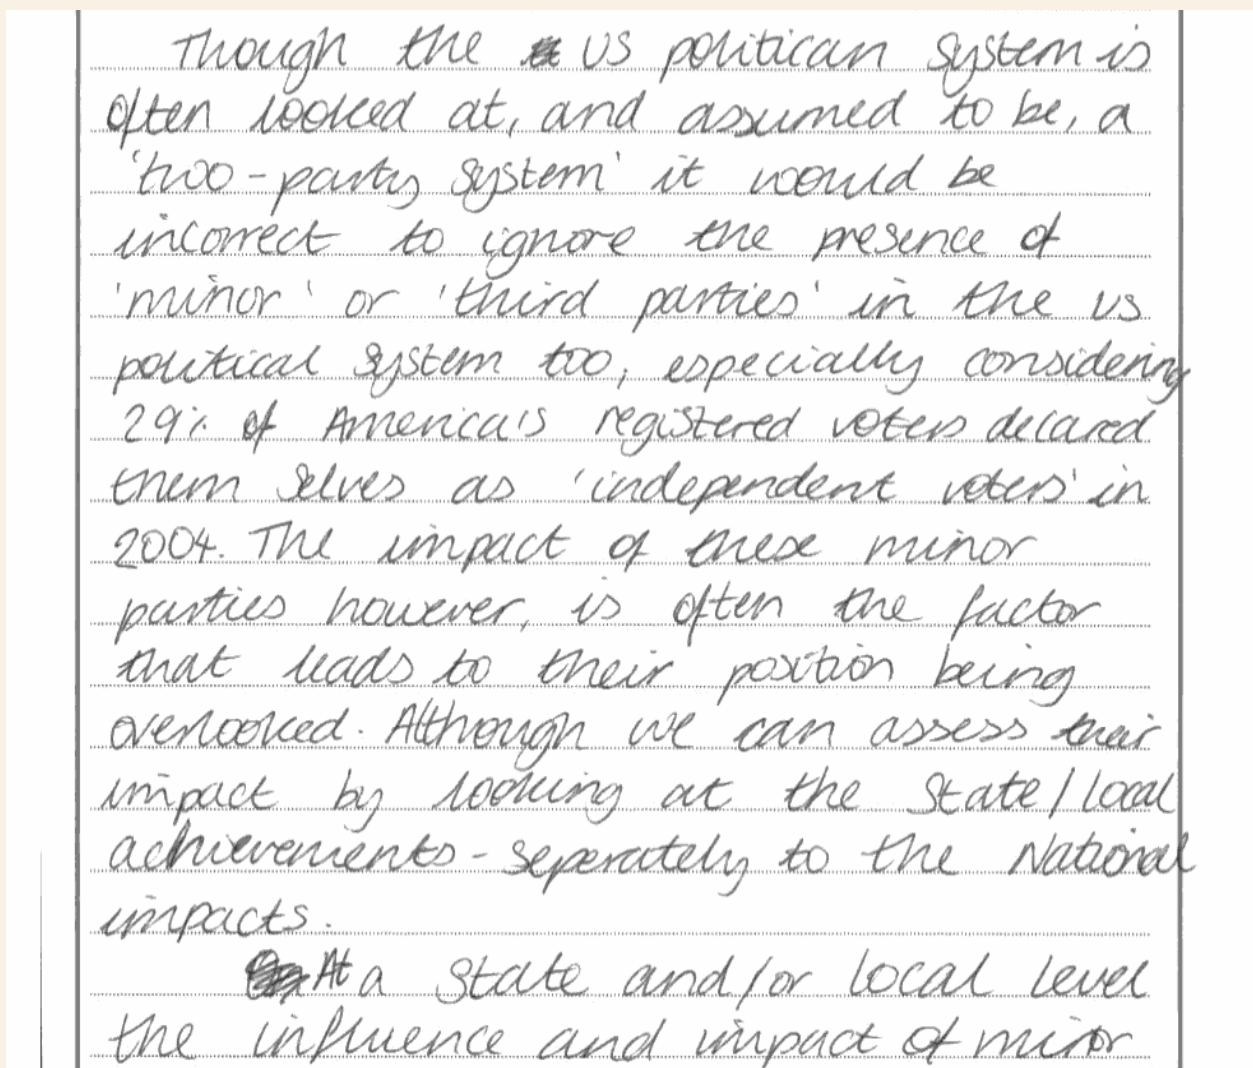 Though the US politican system is
often looked at, and assumed to be, a
'two-party system' it would be
incorrect to ignore the presence of
'minor' or 'third parties' in the US
political system too, especially considering
29% of America's registered voters declared
them selves as 'independent voters' in
2004. The impact of these minor
parties however, is often the factor
that leads to their position being
overlooked. Although we can assess their
impact by looking at the State/local
achievements - seperately to the National
impacts.
At a State and/or local level
the influence and impact of minor